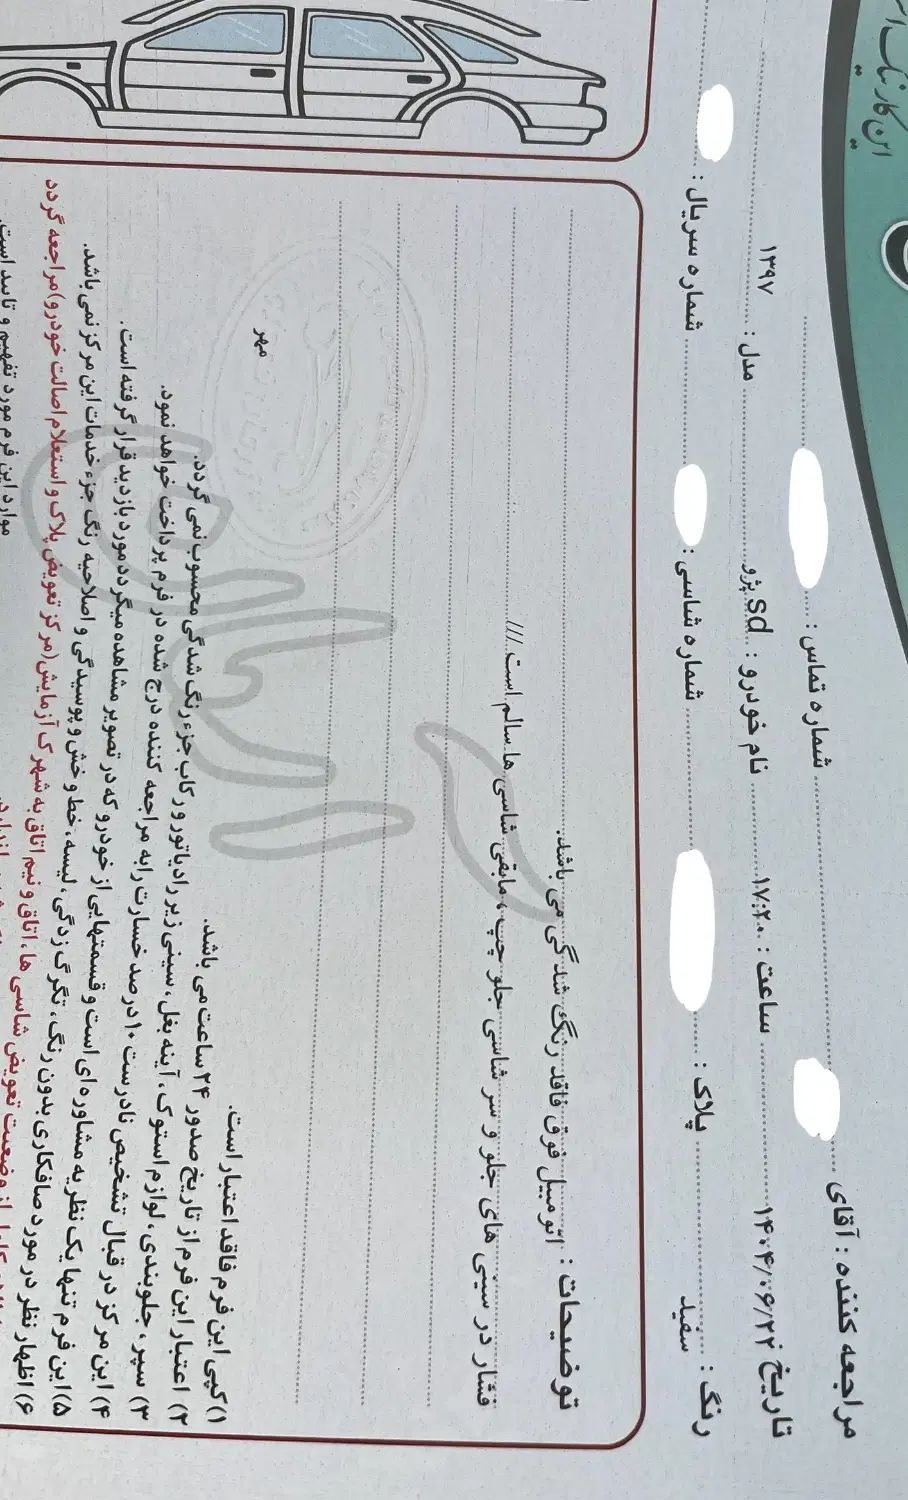 این کارنامه
مراجعه کننده : آقای
شماره تماس :
تاریخ ۱۴۰۴/۰۶/۲۲ ساعت : ۱۷:۲۰ نام خودرو : پژو s.d مدل : ۱۳۹۷
رنگ : سفید پلاک : شماره شاسی : شماره سریال :
توضیحات : اتومبیل فوق فاقد رنگ شدگی می باشد.
فشار در سینی های جلو و سر شاسی جلو چپ ، مابقی شاسی ها سالم است ////
مهر
۱) کپی این فرم فاقد اعتبار است.
۲) اعتبار این فرم از تاریخ صدور ۲۴ ساعت می باشد.
۳) سپر، جلوبندی، لوازم استوک، آینه بغل، سینی زیر رادیاتور و رکاب جزء رنگ شدگی محسوب نمی گردد.
۴) این مرکز در قبال تشخیص نادرست ۱۰ درصد خسارت را به مراجعه کننده درج شده در فرم پرداخت خواهد نمود.
۵) این فرم تنها یک نظریه مشاوره ای است و قسمتهایی از خودرو که در تصویر مشاهده میگردد مورد بازدید قرار گرفته است.
۶) اظهار نظر در مورد صافکاری بدون رنگ، تگرگ زدگی، لیسه، خط و خش و پوسیدگی و اصلاحیه رنگ جزء خدمات این مرکز نمی باشد.
از وضعیت تعویض شاسی ها، اتاق و نیم اتاق به شهرک آزمایش (مرکز تعویض پلاک و استعلام اصالت خودرو) مراجعه گردد
موارد این فرم مورد تفهیم و تایید است.